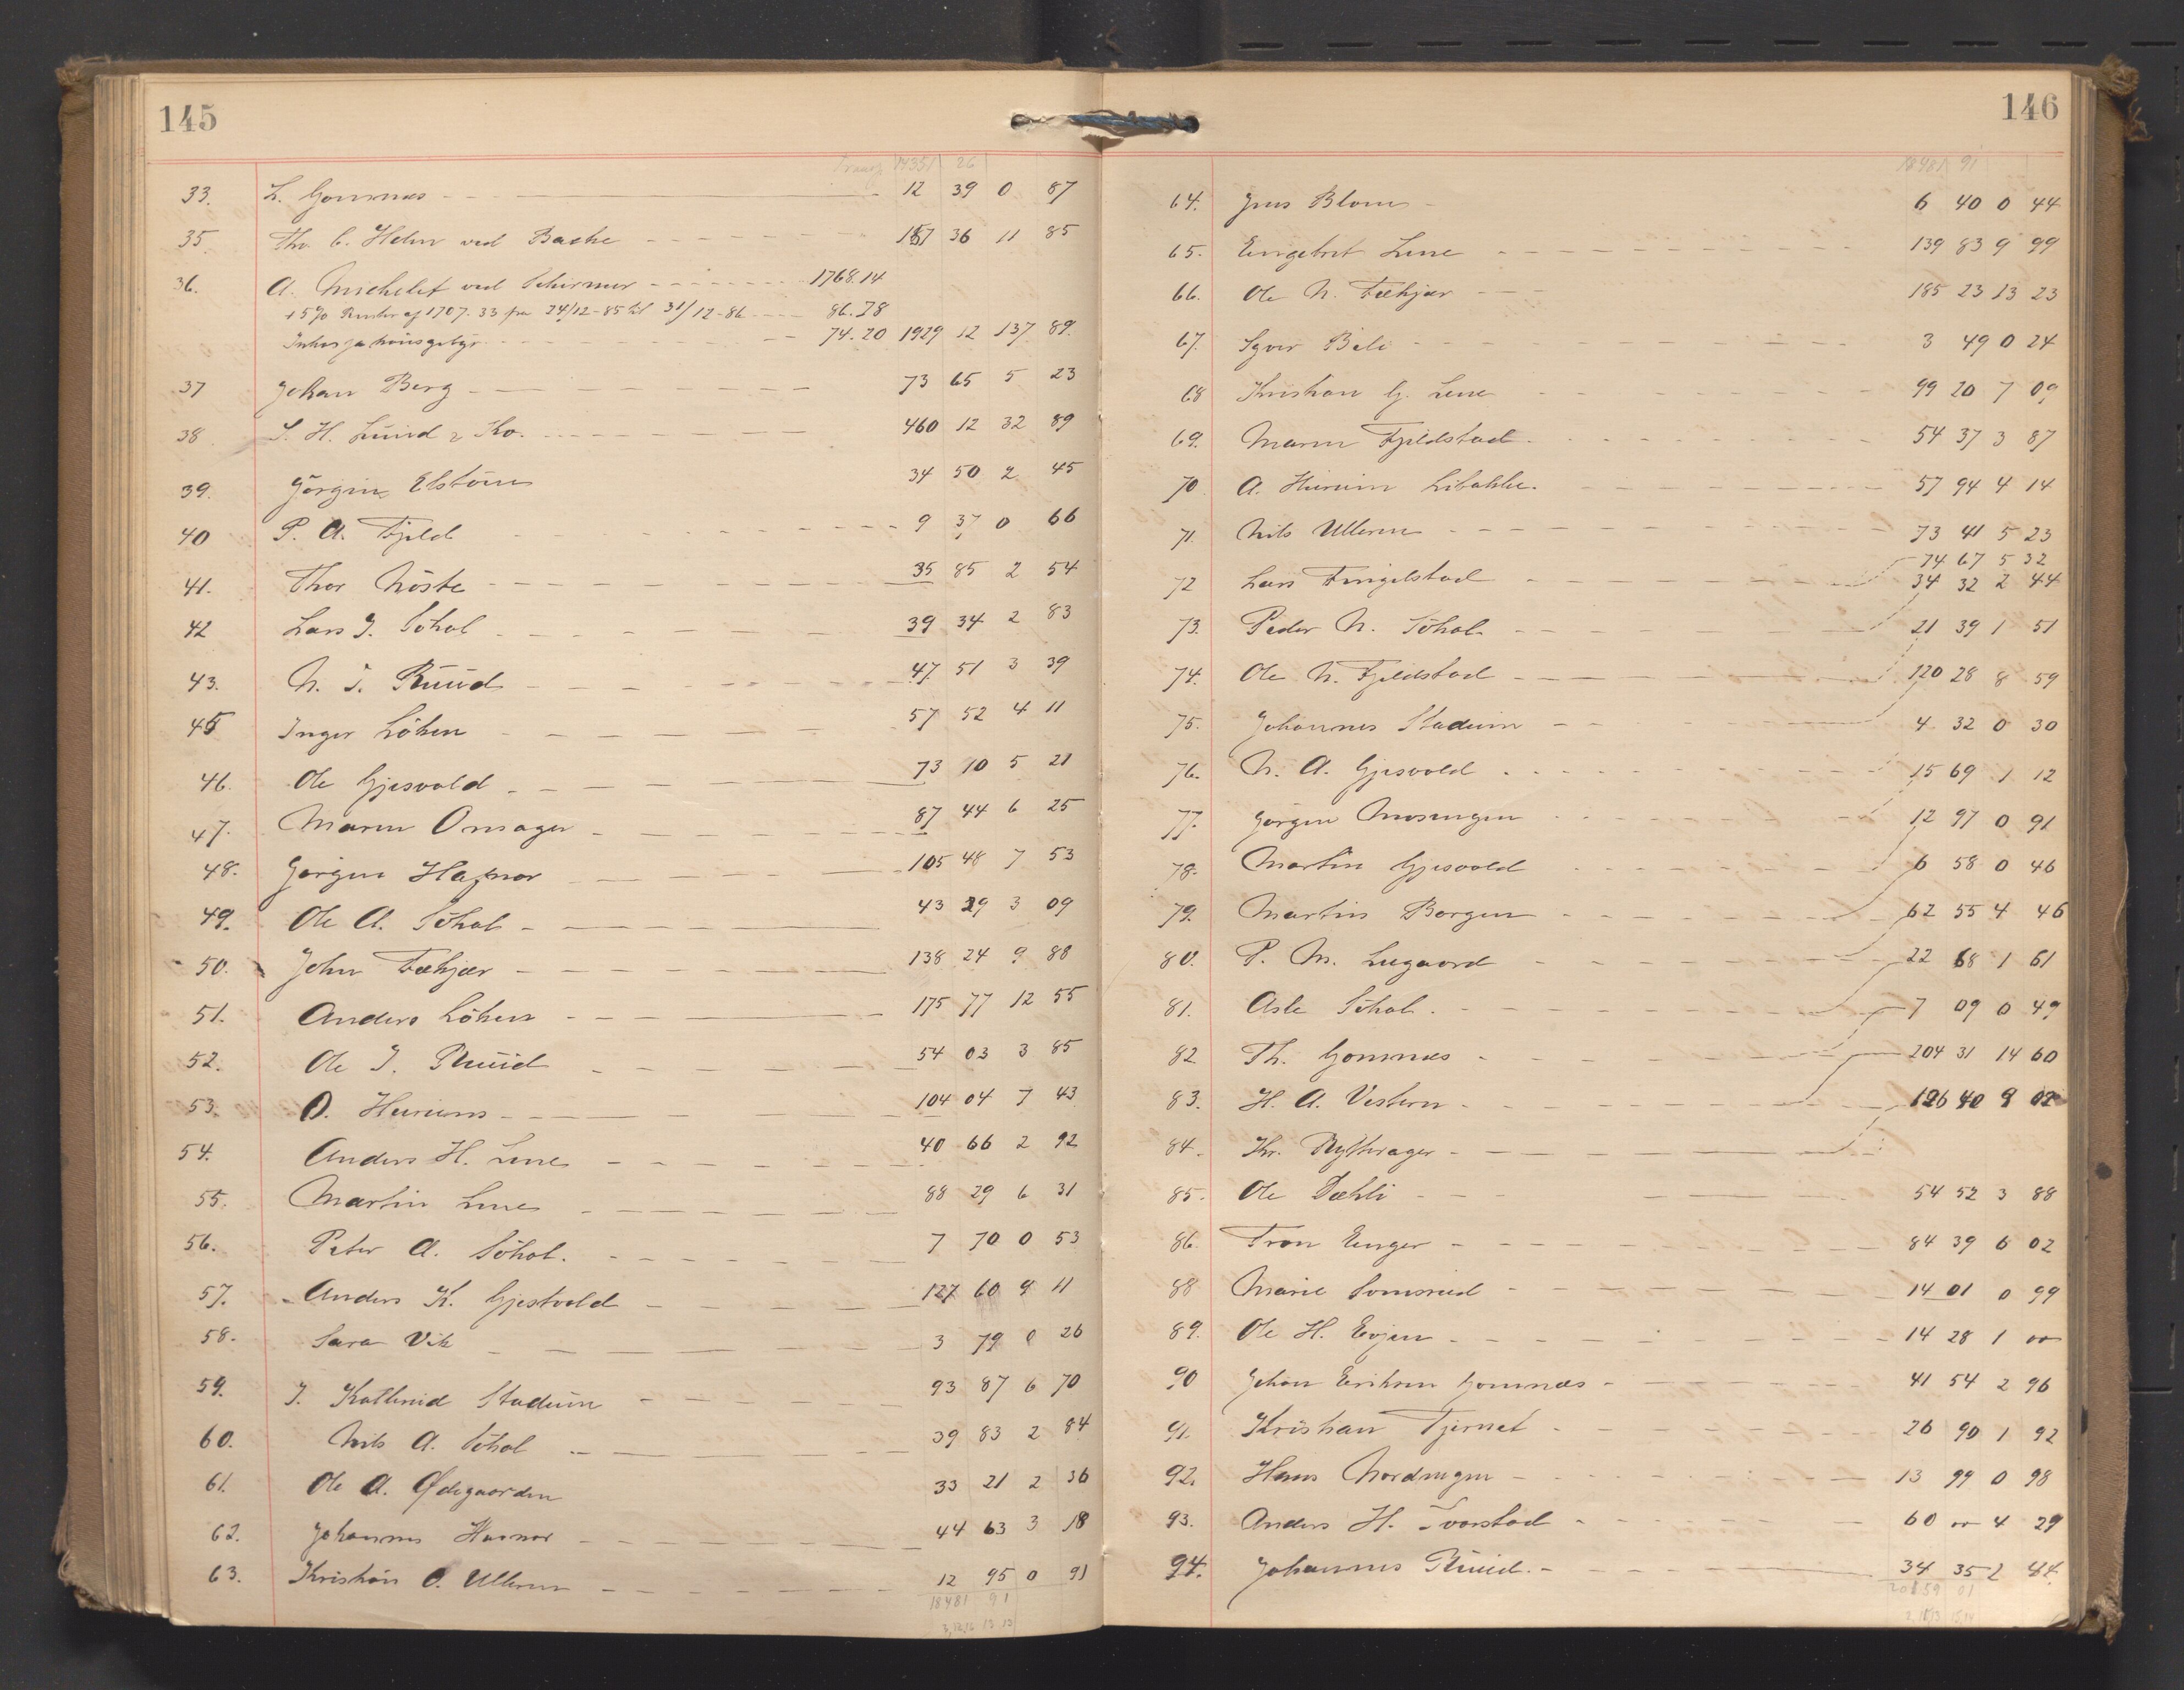 145
Transp. 14351 26
33. L. Gomnæs 12 39 0 87
35. Tho. C. Helm ved Bache 167 36 11 85
36. A. Michelet ved Schirmer 1768.14
+ 5% Renter af 1707.33 fra 24/12-85 til 31/12-86 86.78
74.20 1929 12 137 89.
37 Johan Berg 73 65 5 23
38. S. H. Lund & Ko. 460 12 32 89
39. Jörgine Elstöen 34 50 2 45
40 P. A. Fjeld 9 37 0 66
41. Thor Möste 35 85 2 54
42 Lars J. Söhol 39 34 2 83
43. N. I. Ruud 47 51 3 39
45 Inger Löken 57 52 4 11
46. Ole Gjesvold 73 10 5 21
47. Maren Onsager 87 44 6 25
48. Jörgen Hafnor 105 48 7 53
49. Ole A. Söhol 43 29 3 09
50. John Fækjær 138 24 9 88
51. Anders Löken 175 77 12 55
52. Ole J. Ruud 54 03 3 85
53. O. Hurum 104 04 7 43
54. Anders H. Lene 40 66 2 92
55. Martin Lene 88 29 6 31
56. Peter A. Söhol. 7 70 0 53
57. Anders K. Gjestvold 127 60 9 11
58. Sara Vik 3 79 0 26
59. J. Kolterud Stadum 93 87 6 70
60. Nils A. Söhol 39 83 2 84
61. Ole A. Ødegaarden 33 21 2 36
62. Johannes Havnor 44 63 3 18
63. Kristian O. Ullern 12 95 0 91
18481 91
146
18481 91
64. Jens Blom 6 40 0 44
65. Engebret Lene 139 83 9 99
66. Ole N. Fækjær 185 23 13 23
67. Syver Bili 3 49 0 24
68 Kristian G. Lene 99 20 7 09
69. Maren Fjeldstad. 54 37 3 87
70 A. Hurum Libakke. 57 94 4 14
71. Nils Ullern 73 41 5 23
74 67 5 32
72 Lars Tingelstad 34 32 2 44
73. Peder N. Söhol 21 39 1 51
74. Ole N. Fjeldstad 120 28 8 59
75. Johannes Stadum 4 32 0 30
76. N. A. Gjesvold 15 69 1 12
77. Jörgen Mosengen 12 97 0 91
78. Martin Gjesvold 6 58 0 46
79. Martin Borgen 62 55 4 46
80. P. M. Leegaard 22 68 1 61
81. Asle Söhol. 7 09 0 49
82 Th. Gomnæs 204 31 14 60
83. H. A. Vestern 126 40 9 02
84. Kr. Rytterager
85. Ole Dæhli 54 52 3 88
86. Tron Enger 84 39 6 02
88 Marie Somsrud 14 01 0 99
89. Ole H. Evjen 14 28 1 00
90 Johan Eriksen Gomnæs 41 54 2 96
91. Kristian Tjernet 26 90 1 92
92. Hans Nordengen 13 99 0 98
93. Anders H. Svarstad 60 00 4 29
94. Johannes Ruud. 34 35 2 44
20159 01